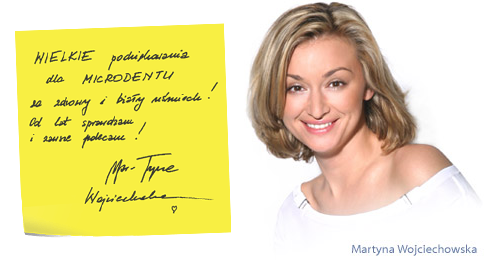 WIELKIE podziękowania
dla MICRODENTU
za zdrowy i biały uśmiech!
Od lat sprawdzam
i zawsze polecam!
Mar-Tyna
Wojciechowska
Martyna Wojciechowska